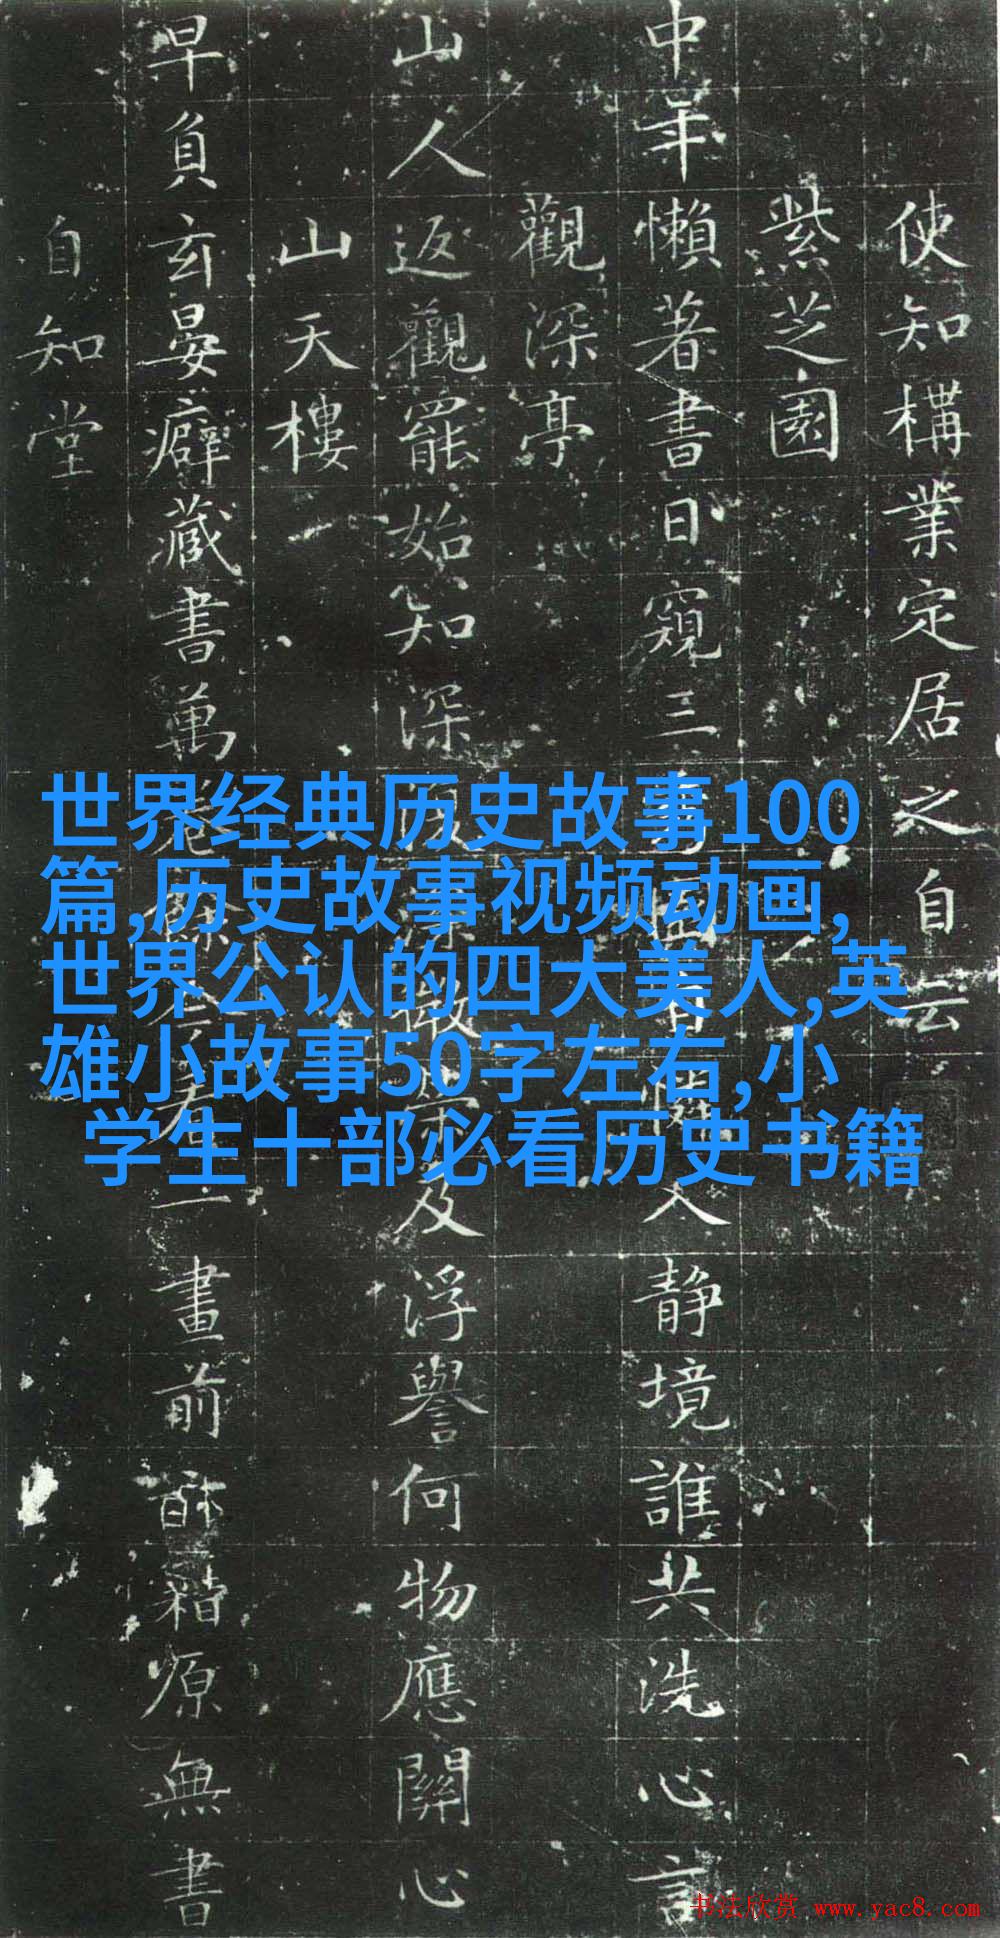 使知構業定居之自云
紫芝園
中年懶著書日窺三易靜境誰共洗心言
觀深亭
山人返觀罷始知深及浮譽何物應關心
山天樓
早負玄晏癖藏書萬一畫前籍原無書
自知堂
世界经典历史故事100
篇,历史故事视频动画,
世界公认的四大美人,英
雄小故事50字左右,小
学生十部必看历史书籍
书法欣赏 www.yac8.com